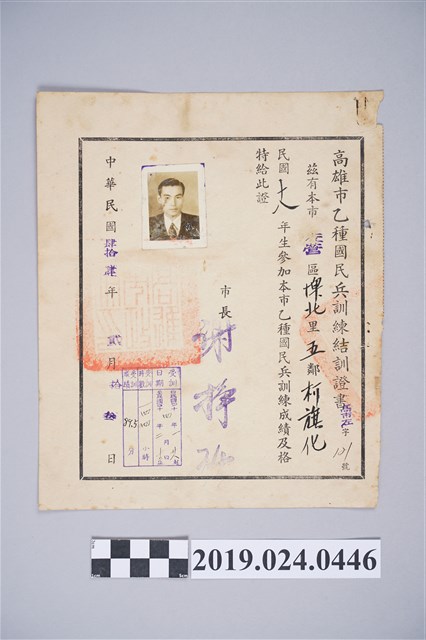 高雄市乙種國民兵訓練結訓證書 字 號
茲有本市 左營 區 埤北 里 五 鄰 柯旗化
民國 十八 年生參加本市乙種國民兵訓練成績及格
特給此證
市長 謝掙強
中華民國 肆拾肆 年 貳 月 拾叁 日
89.5 分
2019.024.0446